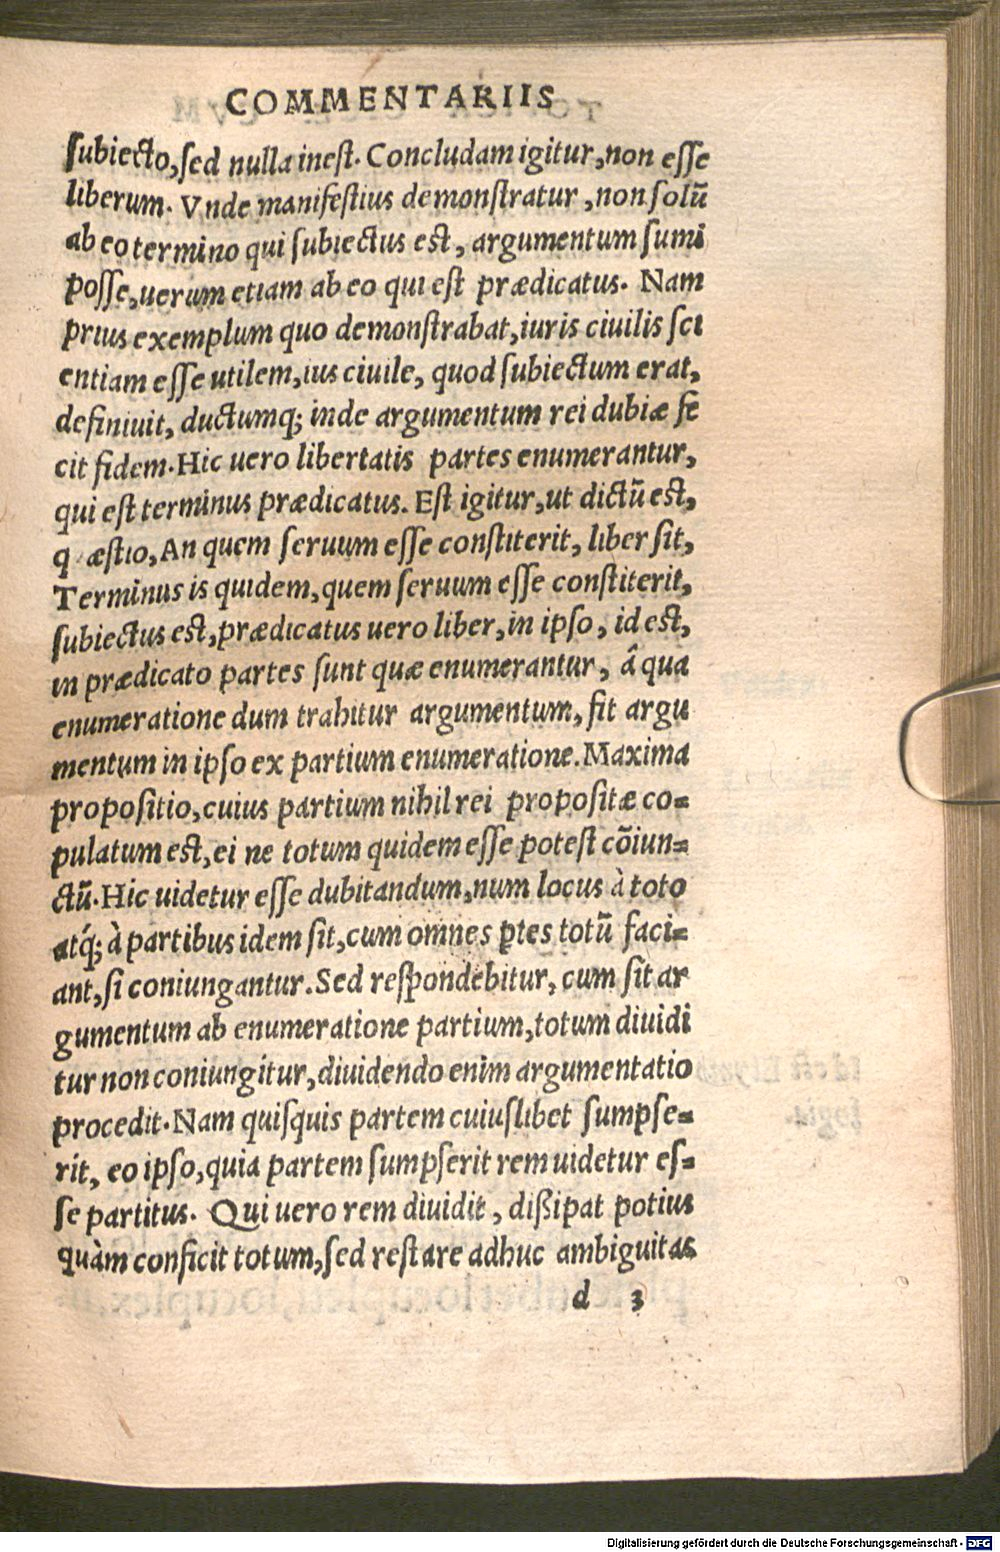 COMMENTARIIS
subiecto, sed nulla inest. Concludam igitur, non esse
liberum. Vnde manifestius demonstratur, non solū
ab eo termino qui subiectus est, argumentum sumi
posse, uerum etiam ab eo qui est prædicatus. Nam
prius exemplum quo demonstrabat, iuris ciuilis sci
entiam esse utilem, ius ciuile, quod subiectum erat,
definiuit, ductumq; inde argumentum rei dubiæ fe
cit fidem. Hic uero libertatis partes enumerantur,
qui est terminus prædicatus. Est igitur, ut dictū est,
q æstio, An quem seruum esse constiterit, liber sit,
Terminus is quidem, quem seruum esse constiterit,
subiectus est, prædicatus uero liber, in ipso, id est,
in prædicato partes sunt quæ enumerantur, â qua
enumeratione dum trahitur argumentum, fit argu
mentum in ipso ex partium enumeratione. Maxima
propositio, cuius partium nihil rei propositæ co-
pulatum est, ei ne totum quidem esse potest cōiun-
ctū. Hic uidetur esse dubitandum, num locus à toto
atq́; à partibus idem sit, cum omnes ptes totū faci-
ant, si coniungantur. Sed respondebitur, cum sit ar
gumentum ab enumeratione partium, totum diuidi
tur non coniungitur, diuidendo enim argumentatio
procedit. Nam quisquis partem cuiuslibet sumpse-
rit, eo ipso, quia partem sumpserit rem uidetur es-
se partitus. Qui uero rem diuidit, dißipat potius
quàm conficit totum, sed restare adhuc ambiguitas
d 3
Digitalisierung gefördert durch die Deutsche Forschungsgemeinschaft - DFG